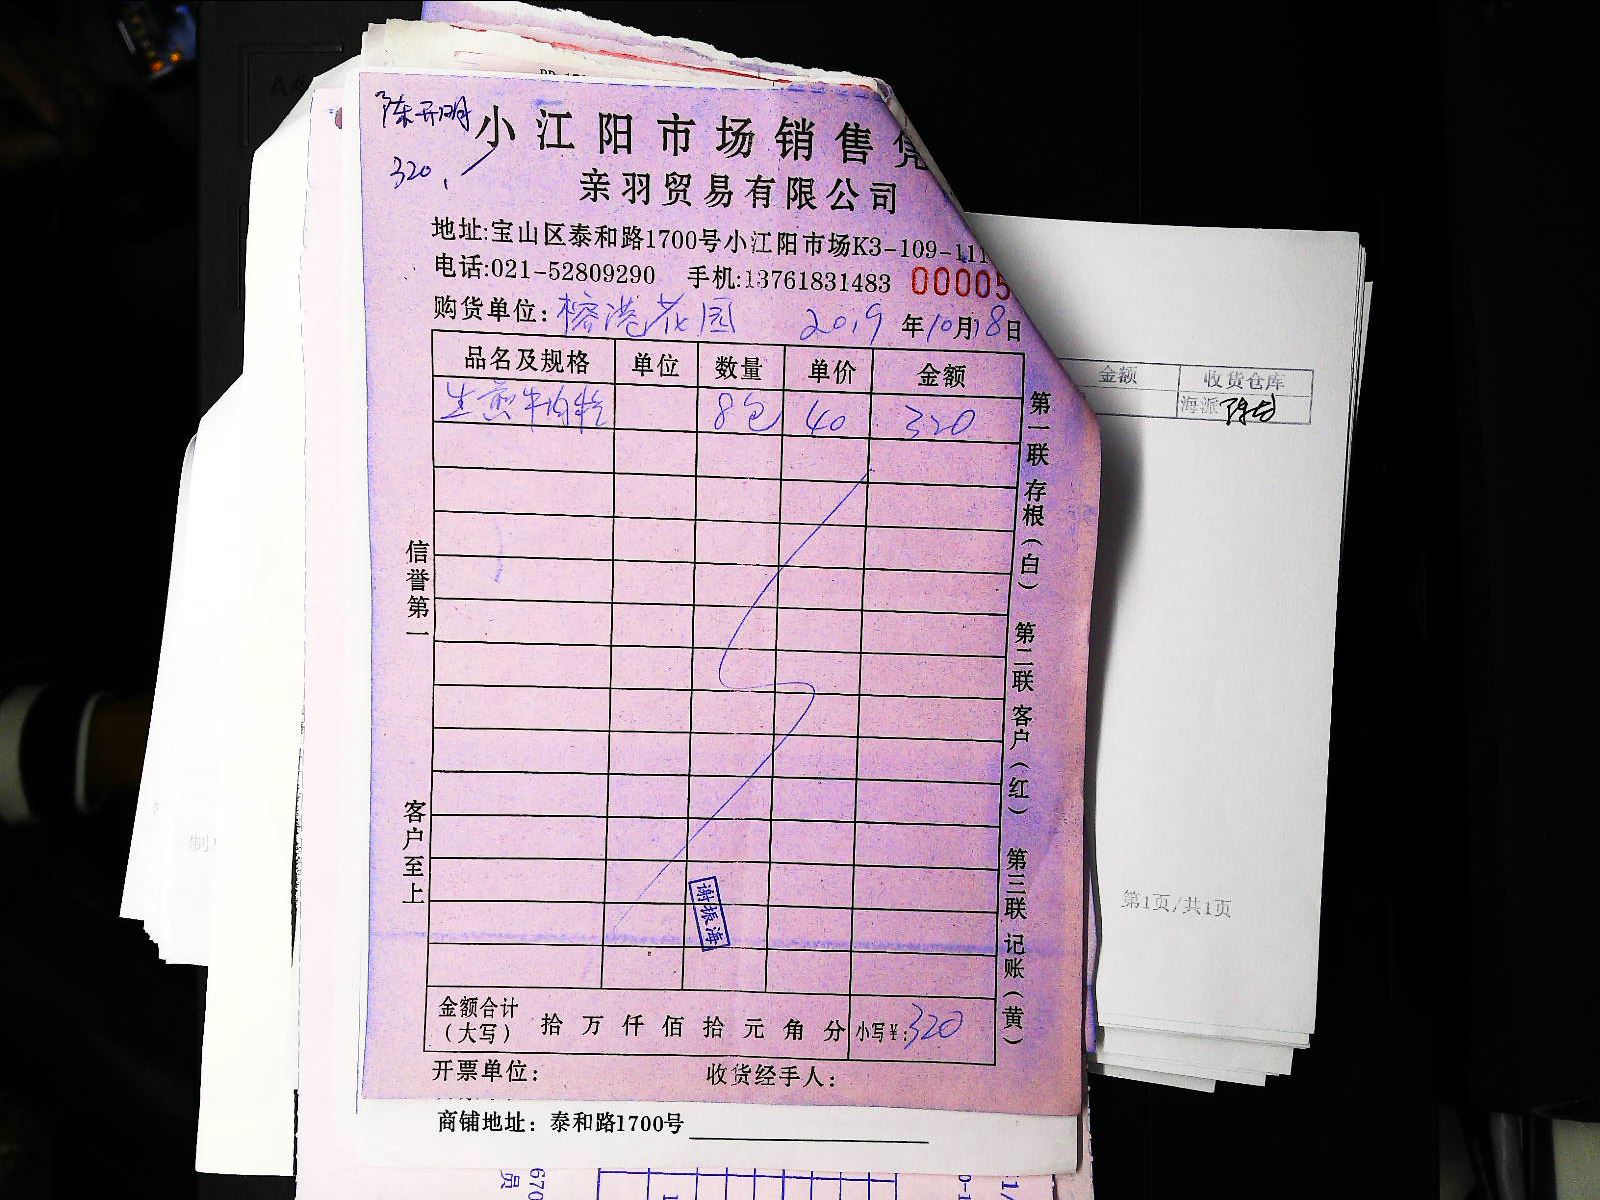 陈开明
320.
小江阳市场销售凭
亲羽贸易有限公司
地址:宝山区泰和路1700号小江阳市场K3-109-111
电话:021-52809290 手机:13761831483 00005
购货单位: 榕港花园 2019 年10月18日
品名及规格 单位 数量 单价 金额
生煎牛肉粒 8包 40 320
信誉第一
客户至上
第一联 存根(白) 第二联 客户(红) 第三联 记账(黄)
谢振海
金额合计(大写) 拾 万 仟 佰 拾 元 角 分 小写¥:320
开票单位: 收货经手人:
商铺地址: 泰和路1700号
金额 收货仓库
海派
第1页/共1页
制单
员
670